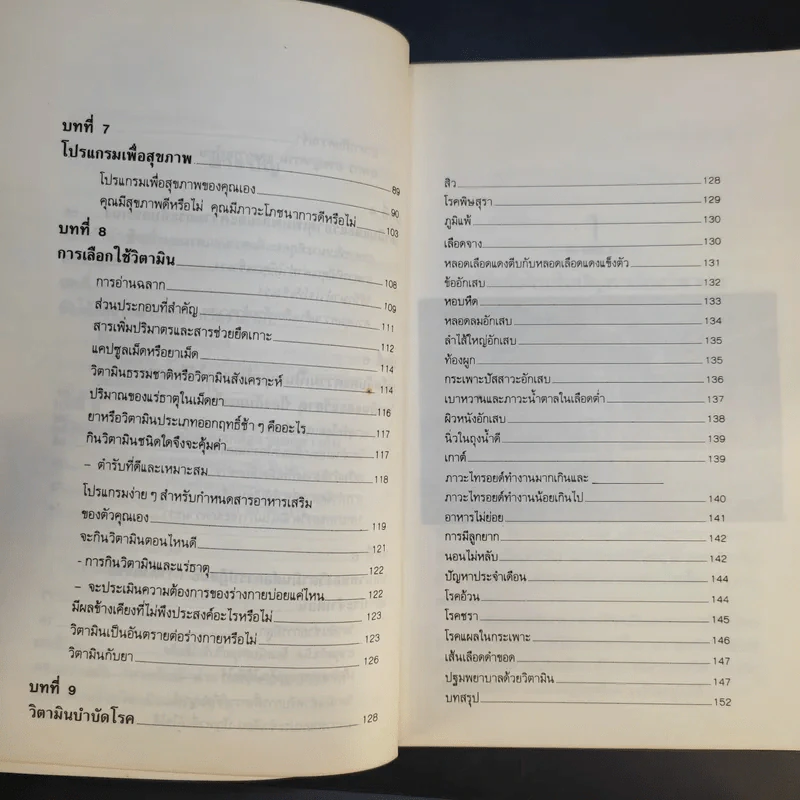 บทที่ 7
โปรแกรมเพื่อสุขภาพ
โปรแกรมเพื่อสุขภาพของคุณเอง 89
คุณมีสุขภาพดีหรือไม่ คุณมีภาวะโภชนาการดีหรือไม่ 90
103
บทที่ 8
การเลือกใช้วิตามิน 108
การอ่านฉลาก 109
ส่วนประกอบที่สำคัญ 111
สารเพิ่มปริมาตรและสารช่วยยึดเกาะ 112
แคปซูลเม็ดหรือยาเม็ด 114
วิตามินธรรมชาติหรือวิตามินสังเคราะห์ 114
ปริมาณของแร่ธาตุในเม็ดยา 116
ยาหรือวิตามินประเภทออกฤทธิ์ช้า ๆ คืออะไร 117
กินวิตามินชนิดใดจึงจะคุ้มค่า 117
– ตำรับที่ดีและเหมาะสม 118
โปรแกรมง่าย ๆ สำหรับกำหนดสารอาหารเสริม
ของตัวคุณเอง 119
จะกินวิตามินตอนไหนดี 121
- การกินวิตามินและแร่ธาตุ 122
– จะประเมินความต้องการของร่างกายบ่อยแค่ไหน 122
มีผลข้างเคียงที่ไม่พึงประสงค์อะไรหรือไม่ 123
วิตามินเป็นอันตรายต่อร่างกายหรือไม่ 123
วิตามินกับยา 126
บทที่ 9
วิตามินบำบัดโรค 128
สิว 128
โรคพิษสุรา 129
ภูมิแพ้ 130
เลือดจาง 130
หลอดเลือดแดงตีบกับหลอดเลือดแดงแข็งตัว 131
ข้ออักเสบ 132
หอบหืด 133
หลอดลมอักเสบ 134
ลำไส้ใหญ่อักเสบ 135
ท้องผูก 135
กระเพาะปัสสาวะอักเสบ 136
เบาหวานและภาวะน้ำตาลในเลือดต่ำ 137
ผิวหนังอักเสบ 138
นิ่วในถุงน้ำดี 139
เกาต์ 139
ภาวะไทรอยด์ทำงานมากเกินและ
ภาวะไทรอยด์ทำงานน้อยเกินไป 140
อาหารไม่ย่อย 141
การมีลูกยาก 142
นอนไม่หลับ 142
ปัญหาประจำเดือน 144
โรคอ้วน 144
โรคชรา 145
โรคแผลในกระเพาะ 146
เส้นเลือดดำขอด 147
ปฐมพยาบาลด้วยวิตามิน 147
บทสรุป 152